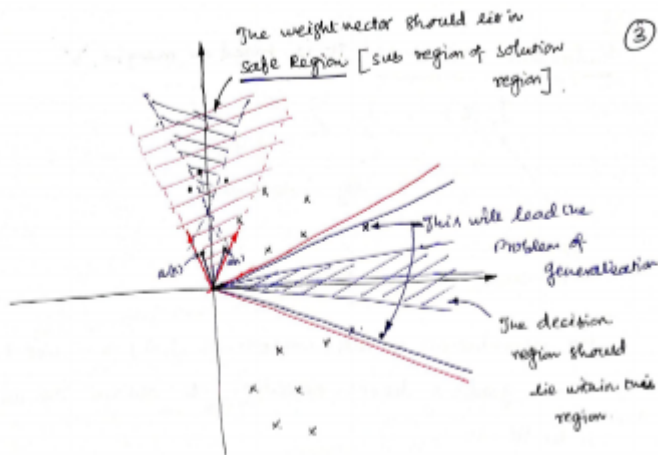 The weight vector should lie in
safe Region [sub region of solution
region].
3
This will lead the
Problem of
generalization
The decision
region should
lie within this
region